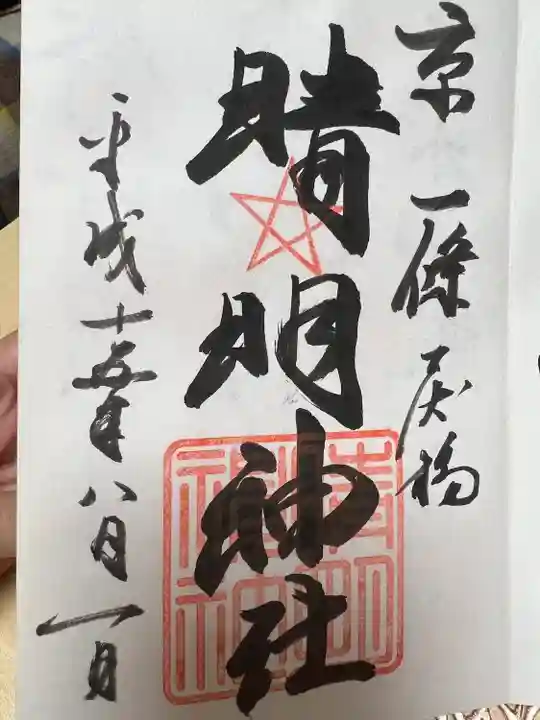 京 一條戻橋
晴明神社
晴明神社
平成十五年八月一日